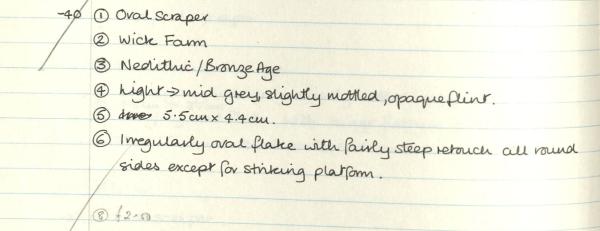 -40 ① Oval Scraper
② Wick Farm
③ Neolithic/Bronze Age
④ Light → mid grey, slightly mottled, opaque flint.
⑤ 5.5cm x 4.4cm.
⑥ Irregularly oval flake with fairly steep retouch all round
sides except for striking platform.
⑧ £2.50